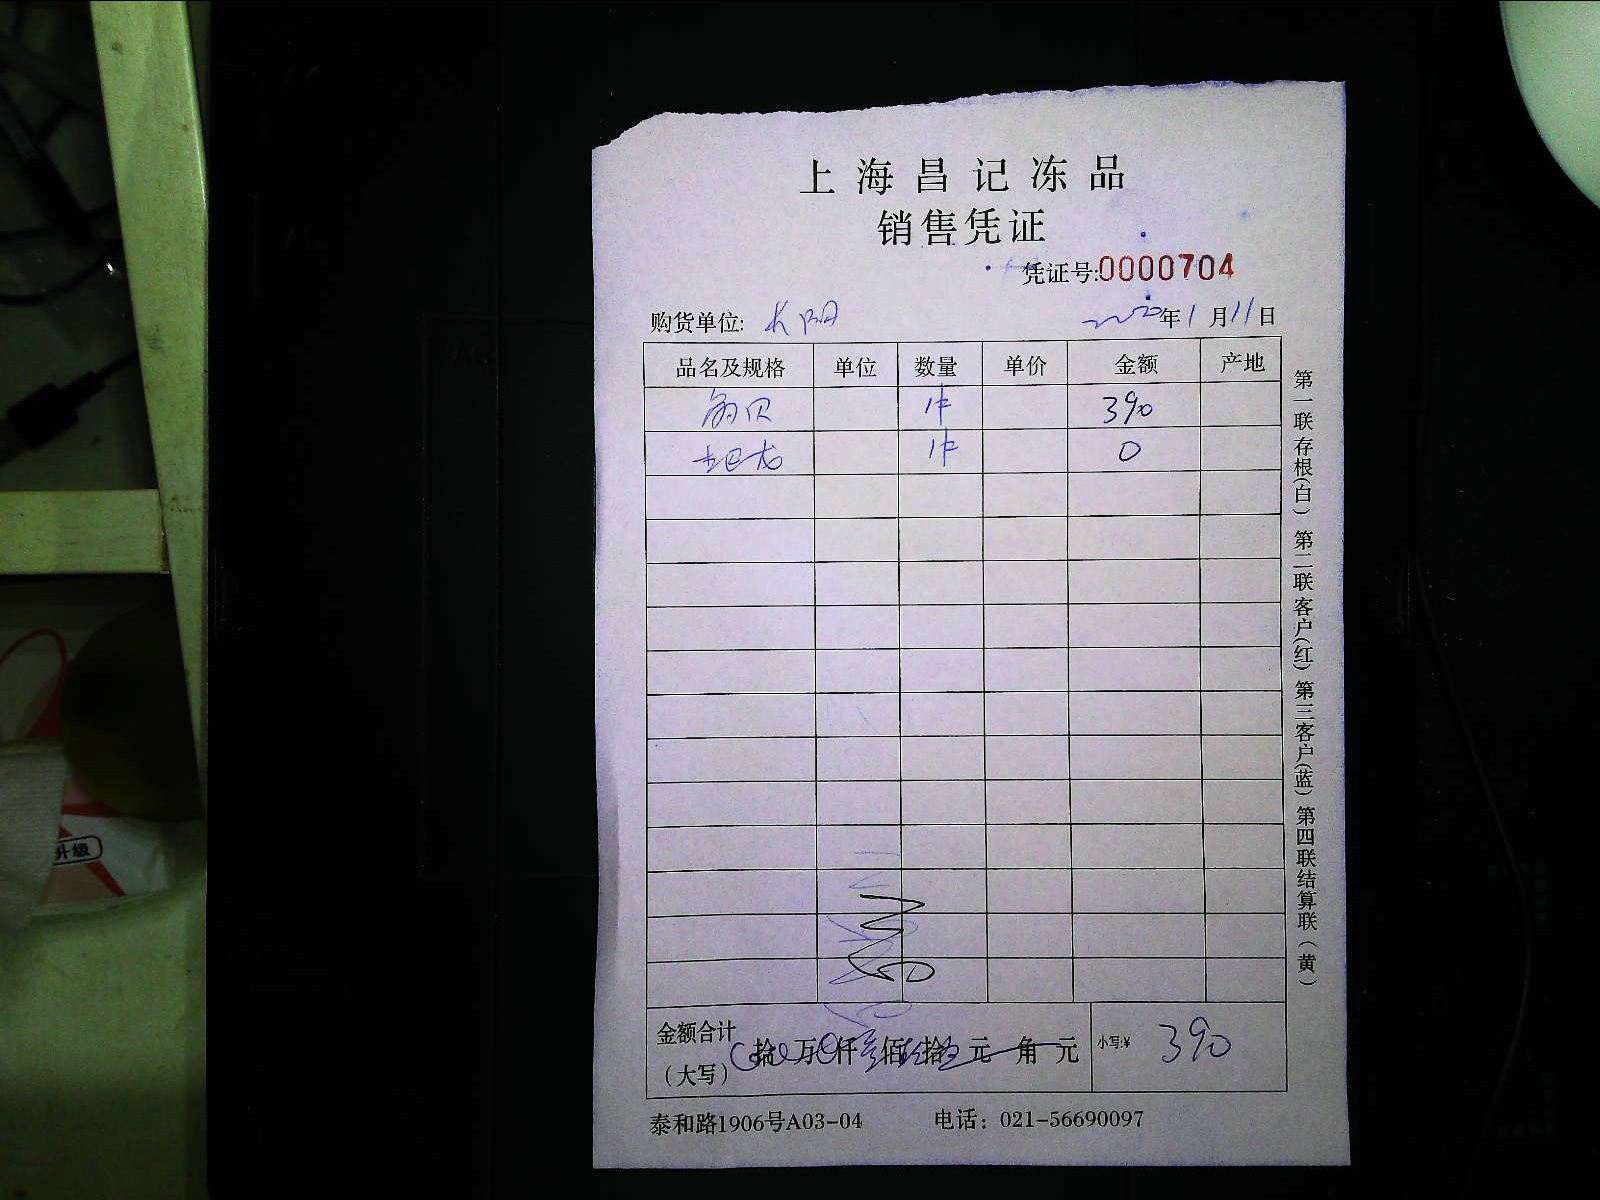 上海昌记冻品
销售凭证
凭证号:0000704
购货单位: 长阳 2020年1月11日
品名及规格 单位 数量 单价 金额 产地
贝 1件 390
龙 1件 0
金额合计
(大写) 拾 万 仟 佰 拾 元 角 元 小写:¥ 390
泰和路1906号A03-04 电话: 021-56690097
第一联存根(白) 第二联客户(红) 第三客户(蓝) 第四联结算联(黄)
升级